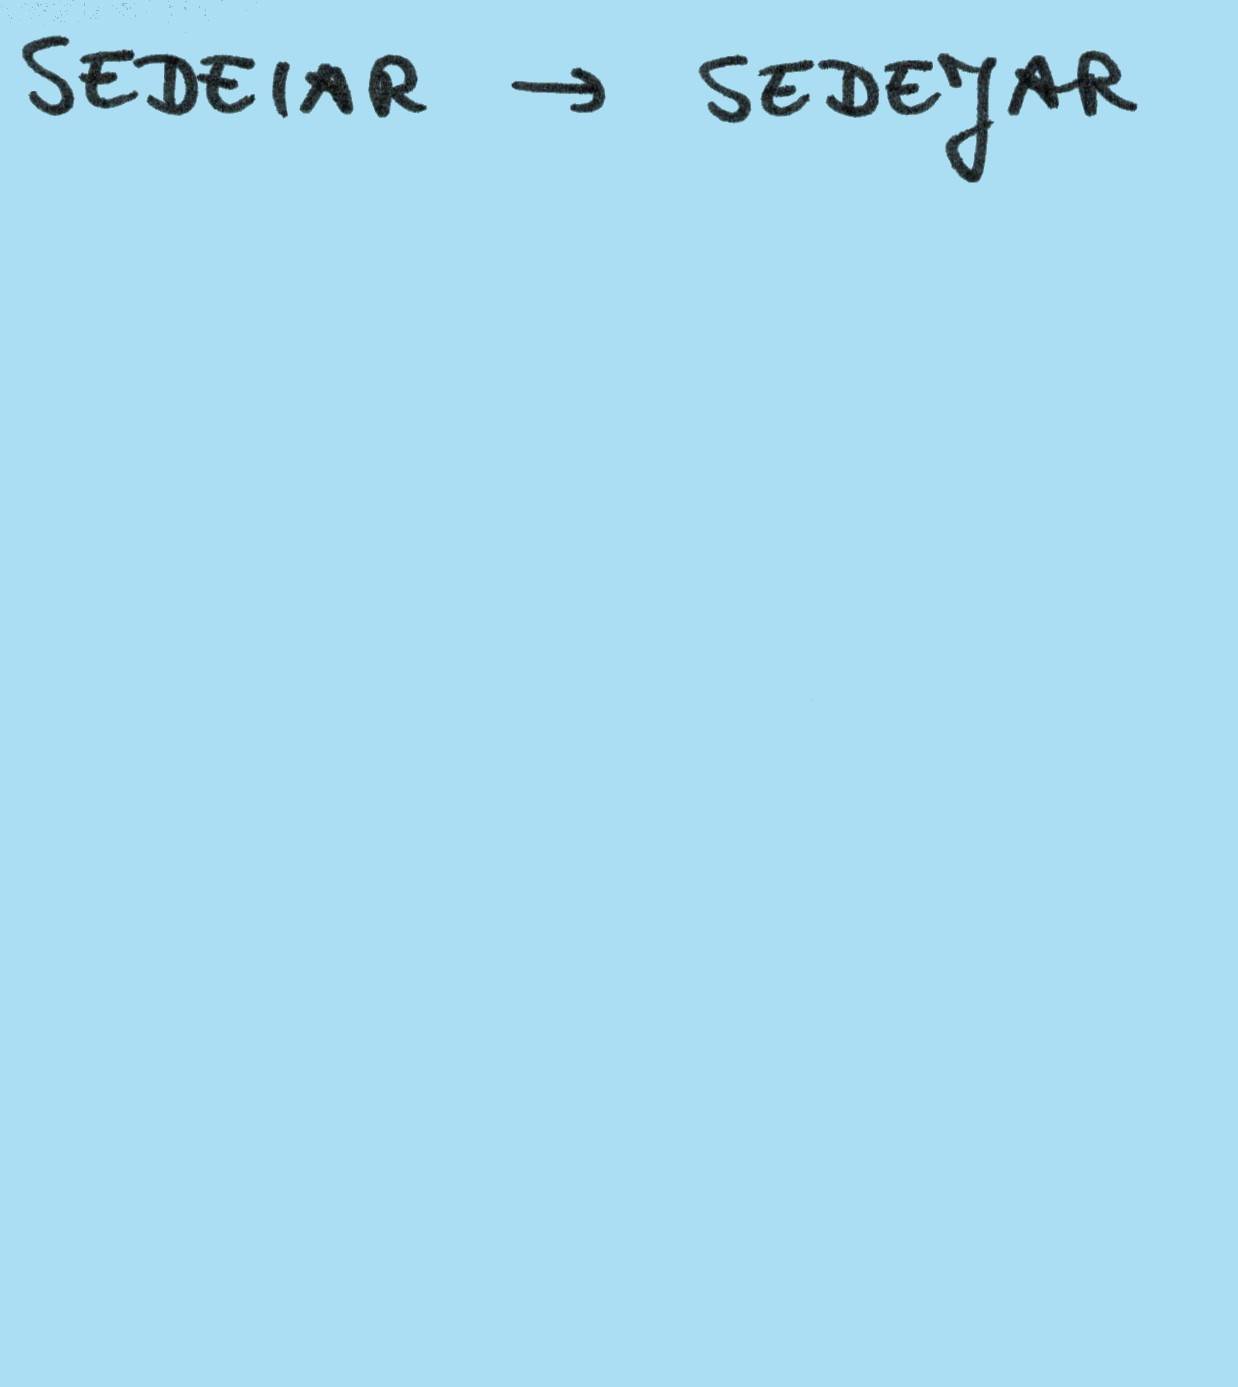 SEDEIAR → SEDEYAR